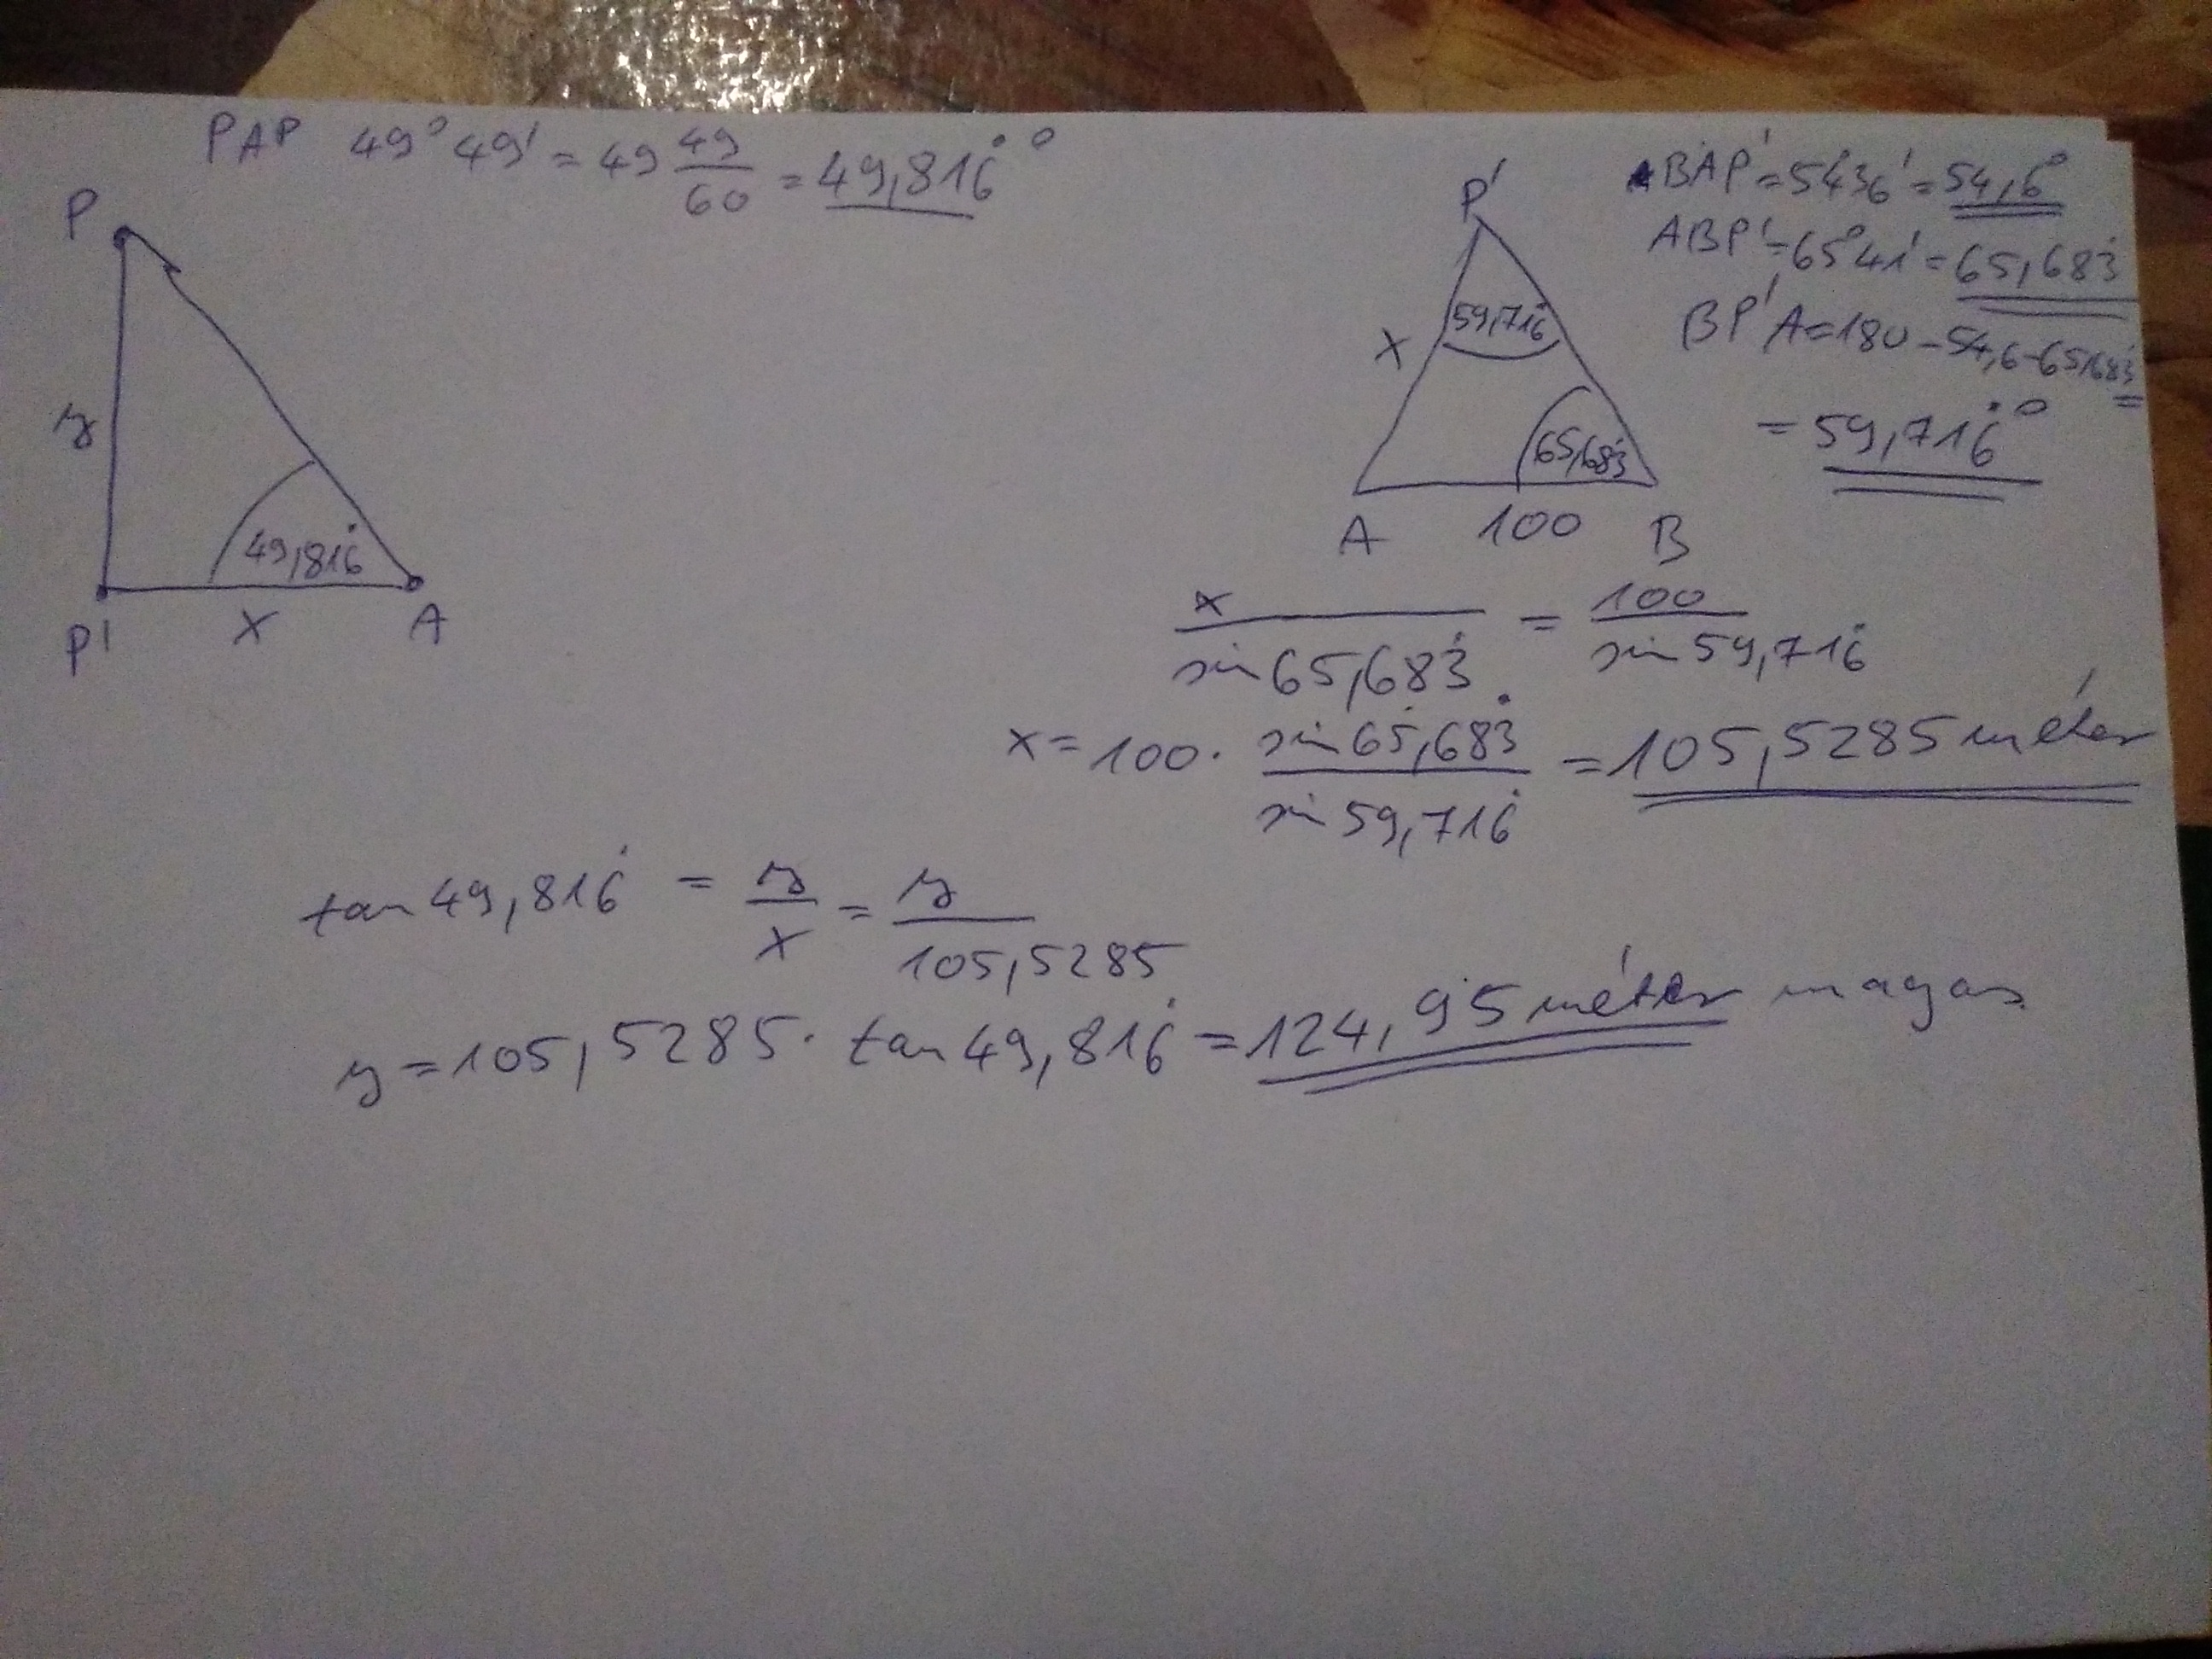 PAP 49° 49' = 49 49/60 = 49,816̇°
P
y
49,816̇
P' x A
BAP' = 54°36' = 54,6°
ABP' = 65°41' = 65,683̇
BP'A = 180 - 54,6 - 65,683̇ =
= 59,716̇°
P'
59,716̇
x
65,683̇
A 100 B
x / sin 65,683̇ = 100 / sin 59,716̇
x = 100 · sin 65,683̇ / sin 59,716̇ = 105,5285 méter
tan 49,816̇ = y / x = y / 105,5285
y = 105,5285 · tan 49,816̇ = 124,95 méter magas